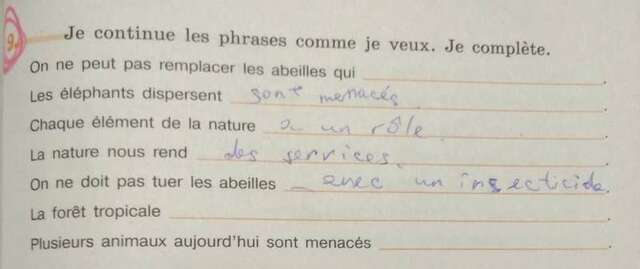 9. Je continue les phrases comme je veux. Je complète.
On ne peut pas remplacer les abeilles qui ___.
Les éléphants dispersent sont menacés.
Chaque élément de la nature a un rôle.
La nature nous rend des services.
On ne doit pas tuer les abeilles avec un insecticide.
La forêt tropicale ___.
Plusieurs animaux aujourd'hui sont menacés ___.